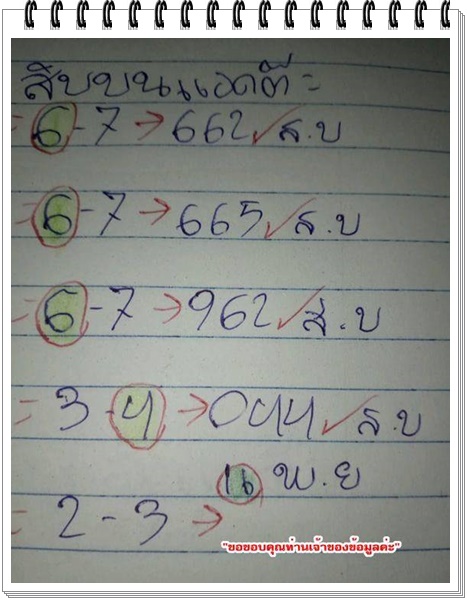 สิบบนแอดตี๋ =
= 6-7 → 662 ✓ ส.บ
= 6-7 → 665 ✓ ส.บ
= 6-7 → 962 ✓ ส.บ
= 3-4 → 044 ✓ ส.บ
16 พ.ย
= 2-3 →
"ขอขอบคุณท่านเจ้าของข้อมูลค่ะ"